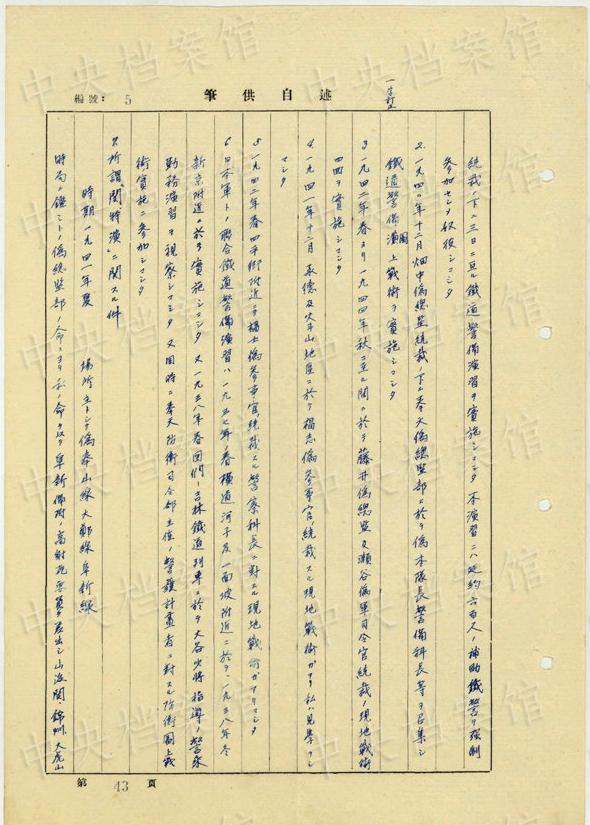 編號：5
述自供筆
一字訂正
統裁ノ下ニ三日ニ亘ル鐵道警備演習ヲ實施シマシタ 本演習ニハ延約六百人ノ補助鐵警ヲ強制
参加セシメ奴役シマシタ
2.一九四〇年十二月畑中偽總監統裁ノ下ニ奉天偽總監部ニ於テ偽本隊長警備科長等ヲ召集シ
鐵道警備圖上戰術ヲ實施シマシタ
3.一九四二年春ヨリ一九四四年秋ニ至ル間ニ於テ藤井偽總監及瀬谷偽軍司令官統裁ノ現地戰術
四回ヲ實施シマシタ
4.一九四一年十二月 承德及 地區ニ於テ 偽参事官ノ統裁スル現地戰術ガアリ私ハ見學シ
マシタ
5.一九四二年春四平街附近ニテ 偽参事官統裁スル警察科長ニ對スル現地戰術ガアリマシタ
6.日本軍トノ聯合鐵道警備演習ハ一九三七年春橫道河子及一面坡附近ニ於テ、一九三八年冬
新京附近ニ於テ實施シマシタ 又一九三八年春図們ー吉林鐵道列車ニ於テ大谷少將指導ノ警乘
勤務演習ヲ視察シマシタ 又同時ニ奉天防衛司令部主催ノ警護計畫者ニ對スル防衛圖上戰
術實施ニ参加シマシタ
7.所謂「関特演」ニ関スル件
時期 一九四一年夏 場所 主トシテ偽奉山線大鄭線阜新線
時局ニ鑑ミ偽總監部ノ命ニヨリ私ノ命ヲ以テ阜新備附ノ高射砲要員ヲ差出シ山海関、錦州、大虎山
第 43 頁
中央档案馆